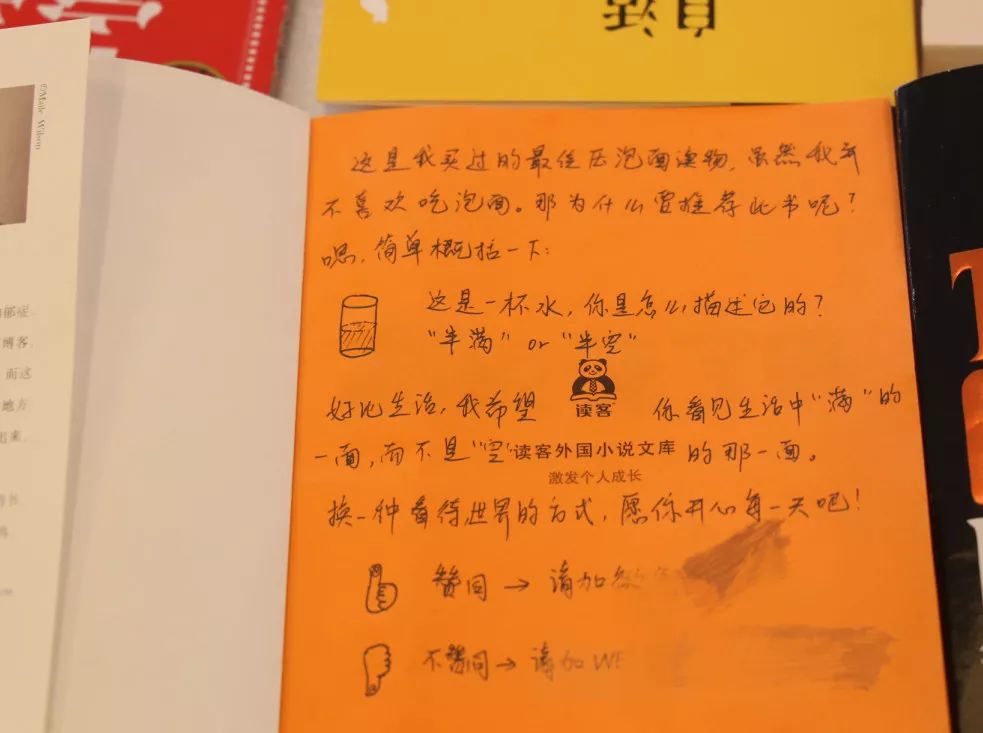 ©Maile Wilson
郁症
博客
而这
地方
出来
这是我买过的最佳压泡面读物，虽然我并
不喜欢吃泡面。那为什么要推荐此书呢？
嗯，简单概括一下：
这是一杯水，你是怎么描述它的？
“半满” or “半空”
好比生活，我希望 你看见生活中“满”的
读客
一面，而不是“空” 的那一面。
读客外国小说文库
激发个人成长
换一种看待世界的方式，愿你开心每一天吧！
赞同→请加微
不赞同→请加W